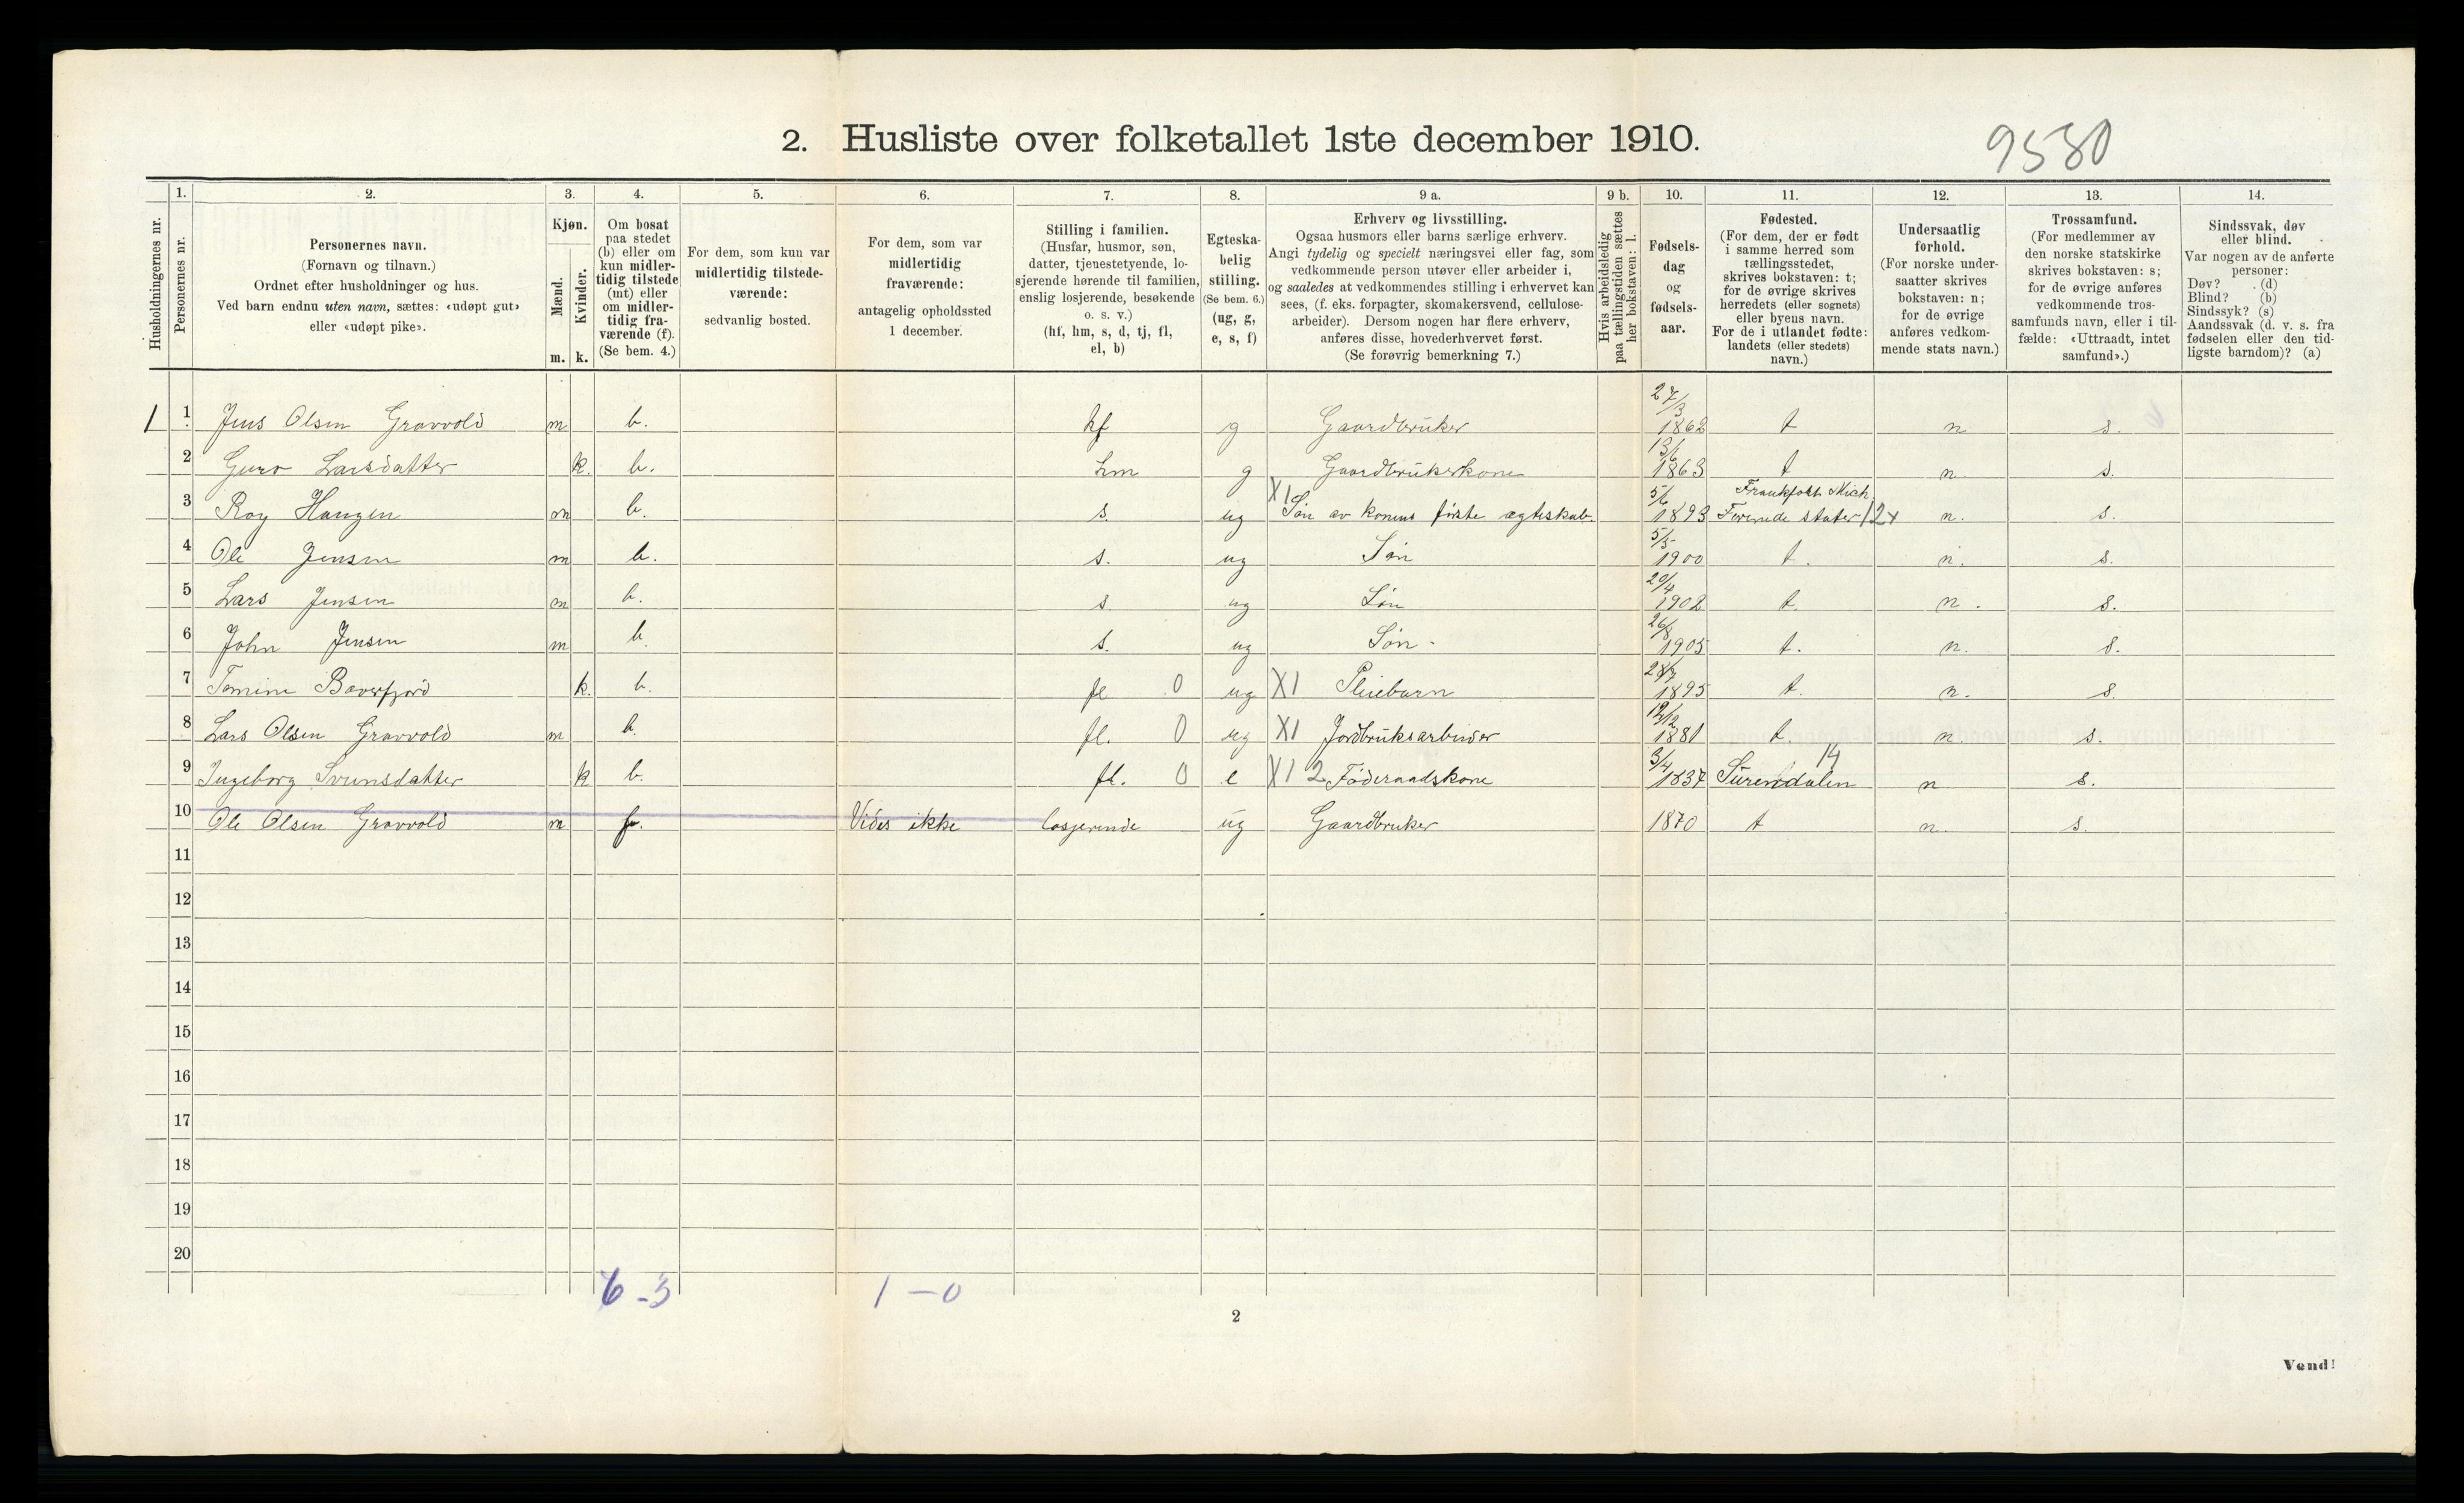 2. Husliste over folketallet 1ste december 1910.
9580
Husholdningernes nr.
1. Personernes nr.
2. Personernes navn.
(Fornavn og tilnavn.)
Ordnet efter husholdninger og hus.
Ved barn endnu uten navn, sættes: «udøpt gut»
eller «udøpt pike».
3. Kjøn.
Mænd. m.
Kvinder. k.
4. Om bosat
paa stedet
(b) eller om
kun midler-
tidig tilstede
(mt) eller
om midler-
tidig fra-
værende (f).
(Se bem. 4.)
5. For dem, som kun var
midlertidig tilstede-
værende:
sedvanlig bosted.
6. For dem, som var
midlertidig
fraværende:
antagelig opholdssted
1 december.
7. Stilling i familien.
(Husfar, husmor, søn,
datter, tjenestetyende, lo-
sjerende hørende til familien,
enslig losjerende, besøkende
o. s. v.)
(hf, hm, s, d, tj, fl,
el, b)
8. Egteska-
belig
stilling.
(Se bem. 6.)
(ug, g,
e, s, f)
9 a. Erhverv og livsstilling.
Ogsaa husmors eller barns særlige erhverv.
Angi tydelig og specielt næringsvei eller fag, som
vedkommende person utøver eller arbeider i,
og saaledes at vedkommendes stilling i erhvervet kan
sees, (f. eks. forpagter, skomakersvend, cellulose-
arbeider). Dersom nogen har flere erhverv,
anføres disse, hovederhvervet først.
(Se forøvrig bemerkning 7.)
9 b. Hvis arbeidsledig
paa tællingstiden sættes
her bokstaven: l.
10. Fødsels-
dag
og
fødsels-
aar.
11. Fødested.
(For dem, der er født
i samme herred som
tællingsstedet,
skrives bokstaven: t;
for de øvrige skrives
herredets (eller sognets)
eller byens navn.
For de i utlandet fødte:
landets (eller stedets)
navn.)
12. Undersaatlig
forhold.
(For norske under-
saatter skrives
bokstaven: n;
for de øvrige
anføres vedkom-
mende stats navn.)
13. Trossamfund.
(For medlemmer av
den norske statskirke
skrives bokstaven: s;
for de øvrige anføres
vedkommende tros-
samfunds navn, eller i til-
fælde: «Uttraadt, intet
samfund».)
14. Sindssvak, døv
eller blind.
Var nogen av de anførte
personer:
Døv? (d)
Blind? (b)
Sindssyk? (s)
Aandssvak (d. v. s. fra
fødselen eller den tid-
ligste barndom)? (a)
1 1 Jens Olsen Gravvold m b. hf g Gaardbruker 27/3 1862 t n s.
2 Guro Larsdatter k. b. hm g Gaardbrukerkone 13/6 1863 t n. s.
3 Roy Haugen m b. s. ug X1 Søn av konens første ægteskab. 5/6 1893 Frankfort Mich. Forenede stater 12x n. s.
4 Ole Jensen m b. s. ug Søn 5/5 1900 t. n. s.
5 Lars Jensen m b. s ug Søn 20/4 1902 t. n. s.
6 John Jensen m b. s. ug Søn 26/8 1905 t. n. s.
7 Bøverfjord k. b. fl 0 ug X1 Pleiebarn 1895 t. n. s.
8 Lars Olsen Gravvold m b. fl. 0 ug X1 Jordbruksarbeider 12/12 1881 t. n. s.
9 Ingeborg Svensdatter k b. fl. 0 e X1 2 Føderaadskone 3/4 1837 Surendalen 14 n s.
10 Ole Olsen Gravvold m f. Vides ikke losjerende ug Gaardbruker 1870 t n. s.
11
12
13
14
15
16
17
18
19
20
6 - 3 1 - 0
2
Vend!